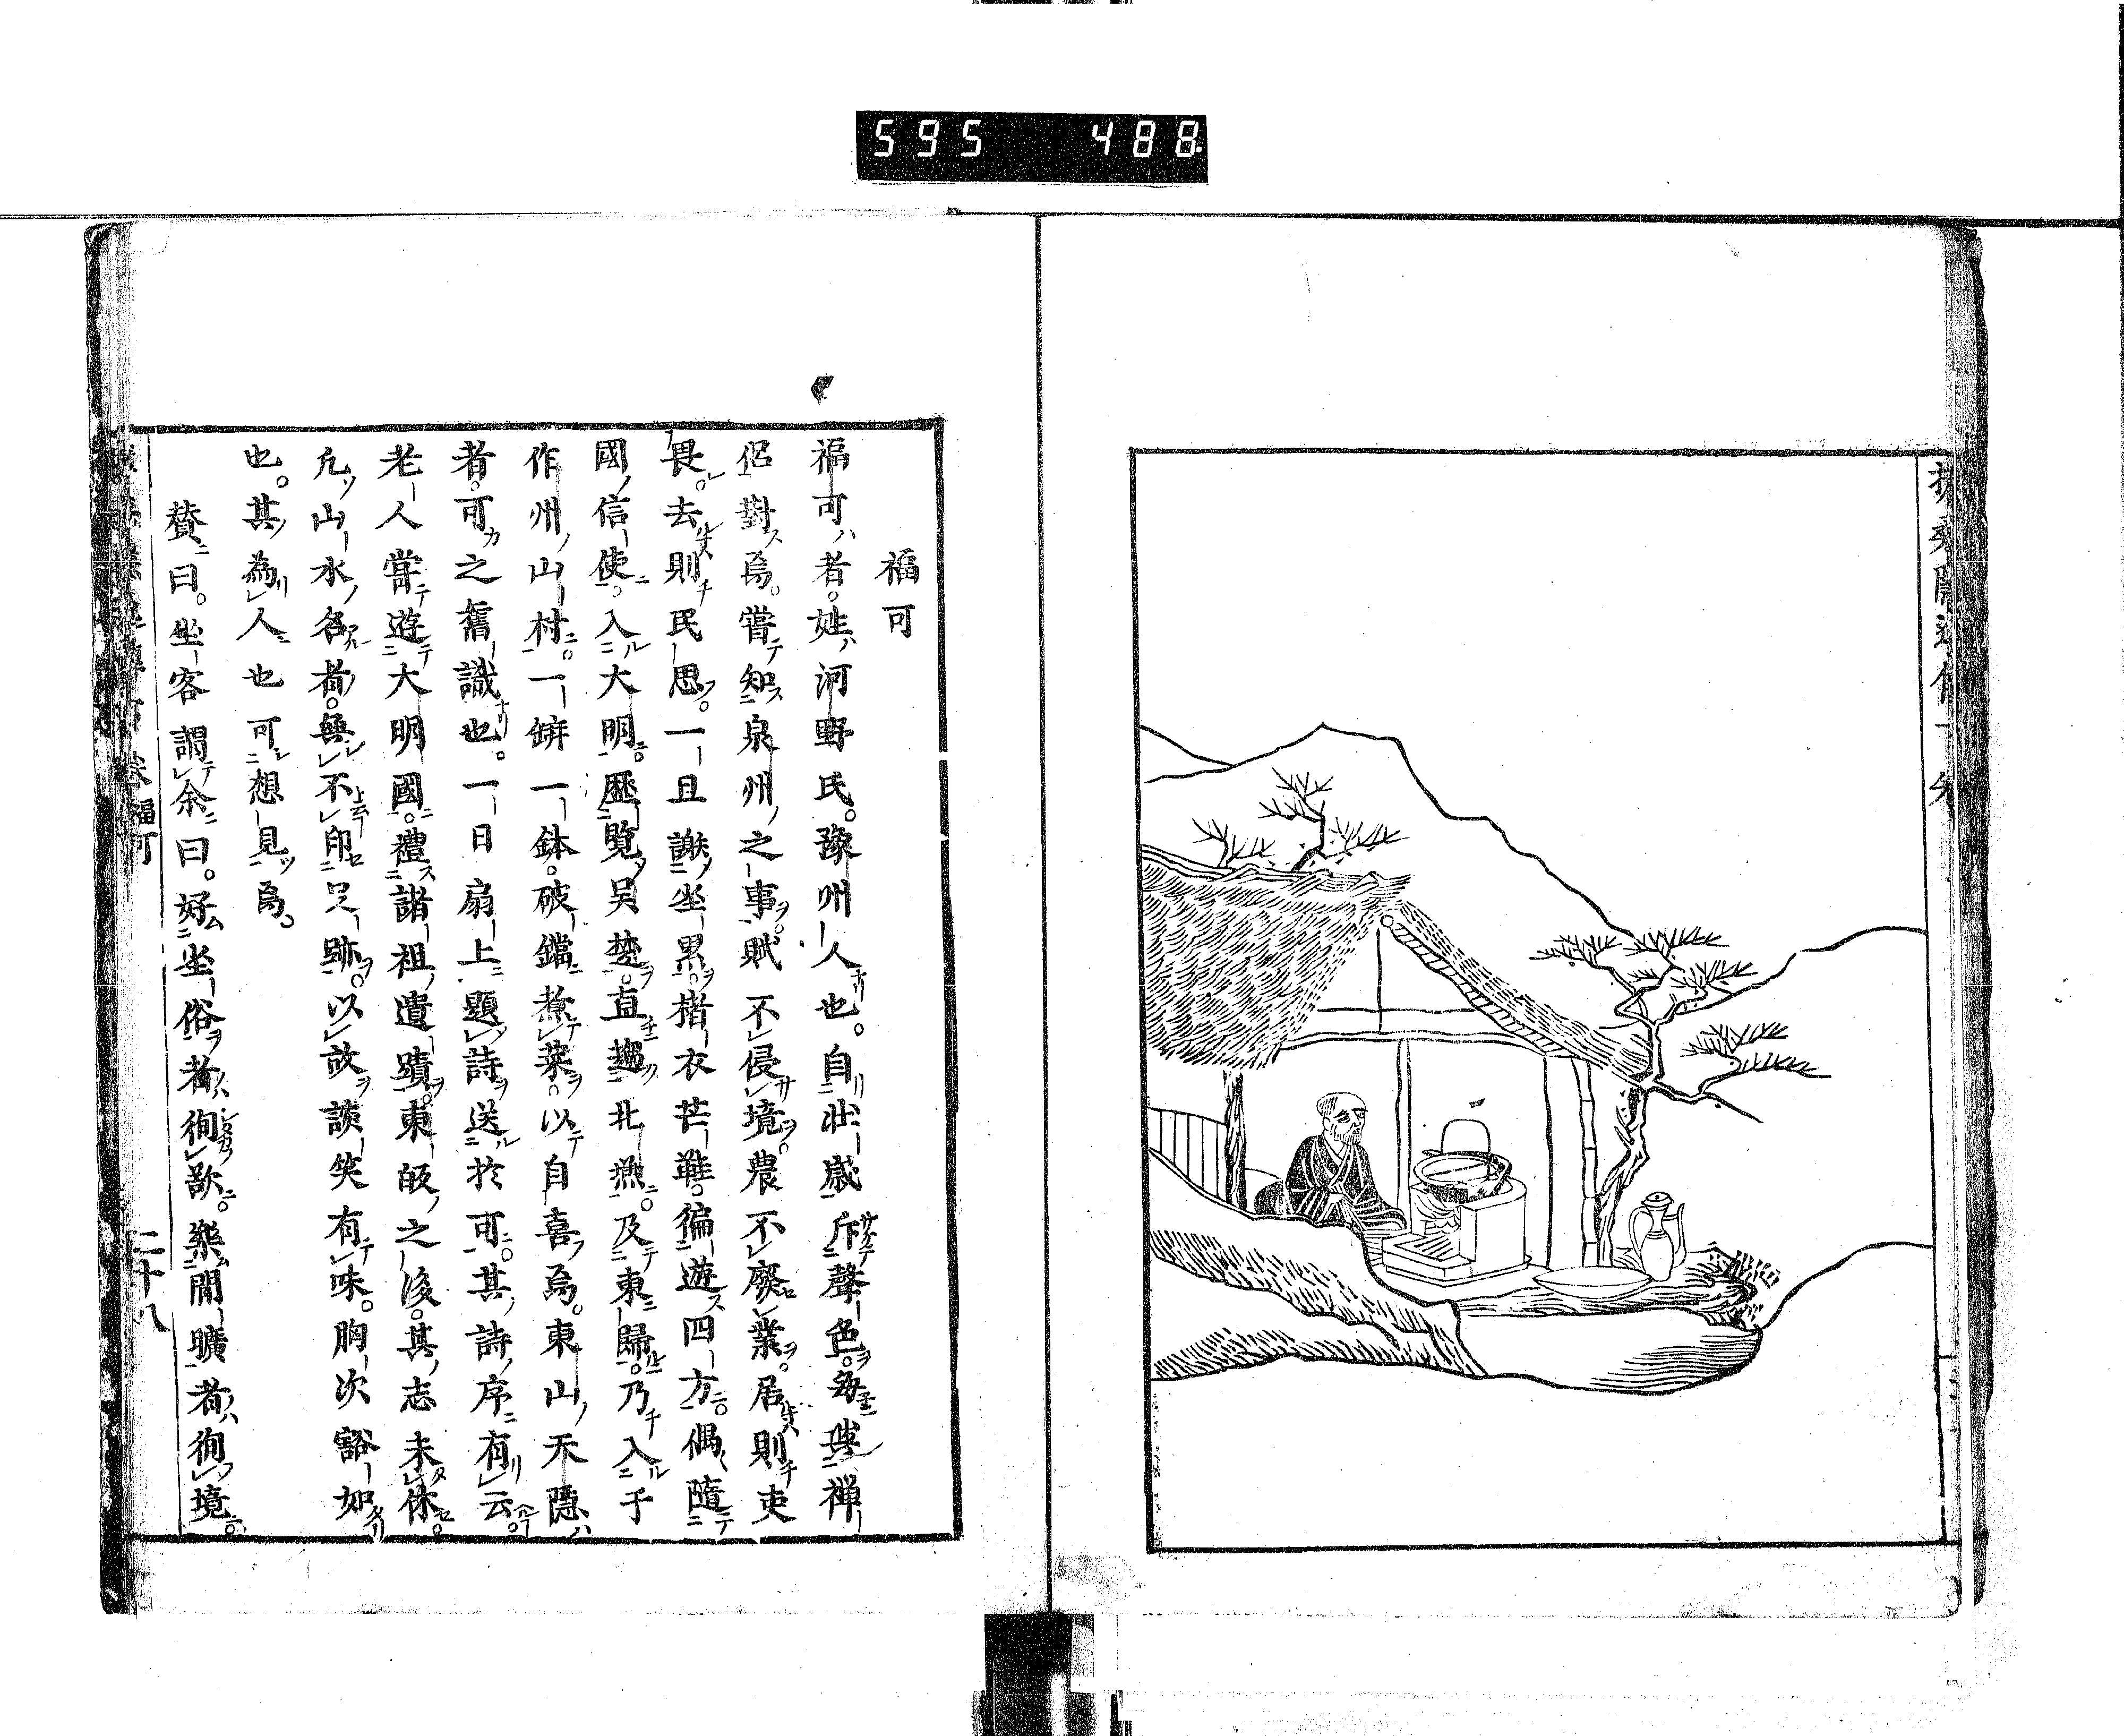 595 488
福可
福可者。姓河野氏。豫州人也。自壯歲斥聲色。每與禪
侶對焉。嘗知泉州之事。賦不侵境。農不廢業。居則吏
畏。去則民思。一旦謝坐累。楮衣芒鞋。徧遊四方。偶隨
國信使。入大明。歷覽吳楚。直趨北燕。及東歸。乃入于
作州山村。一缾一鉢。破鐺煮菜。以自喜焉。東山天隱
者。可之舊識也。一日扇上題詩送於可。其詩序有云。
老人嘗遊大明國。禮諸祖遺蹟。東皈之後。其志未休。
凡山水名者。無不印只跡。以故談笑有味。胸次豁如
也。其為人也可想見焉。
贊曰。坐客謂余曰。好坐俗者徇歆。樂閒曠者徇境。
福可
二十八